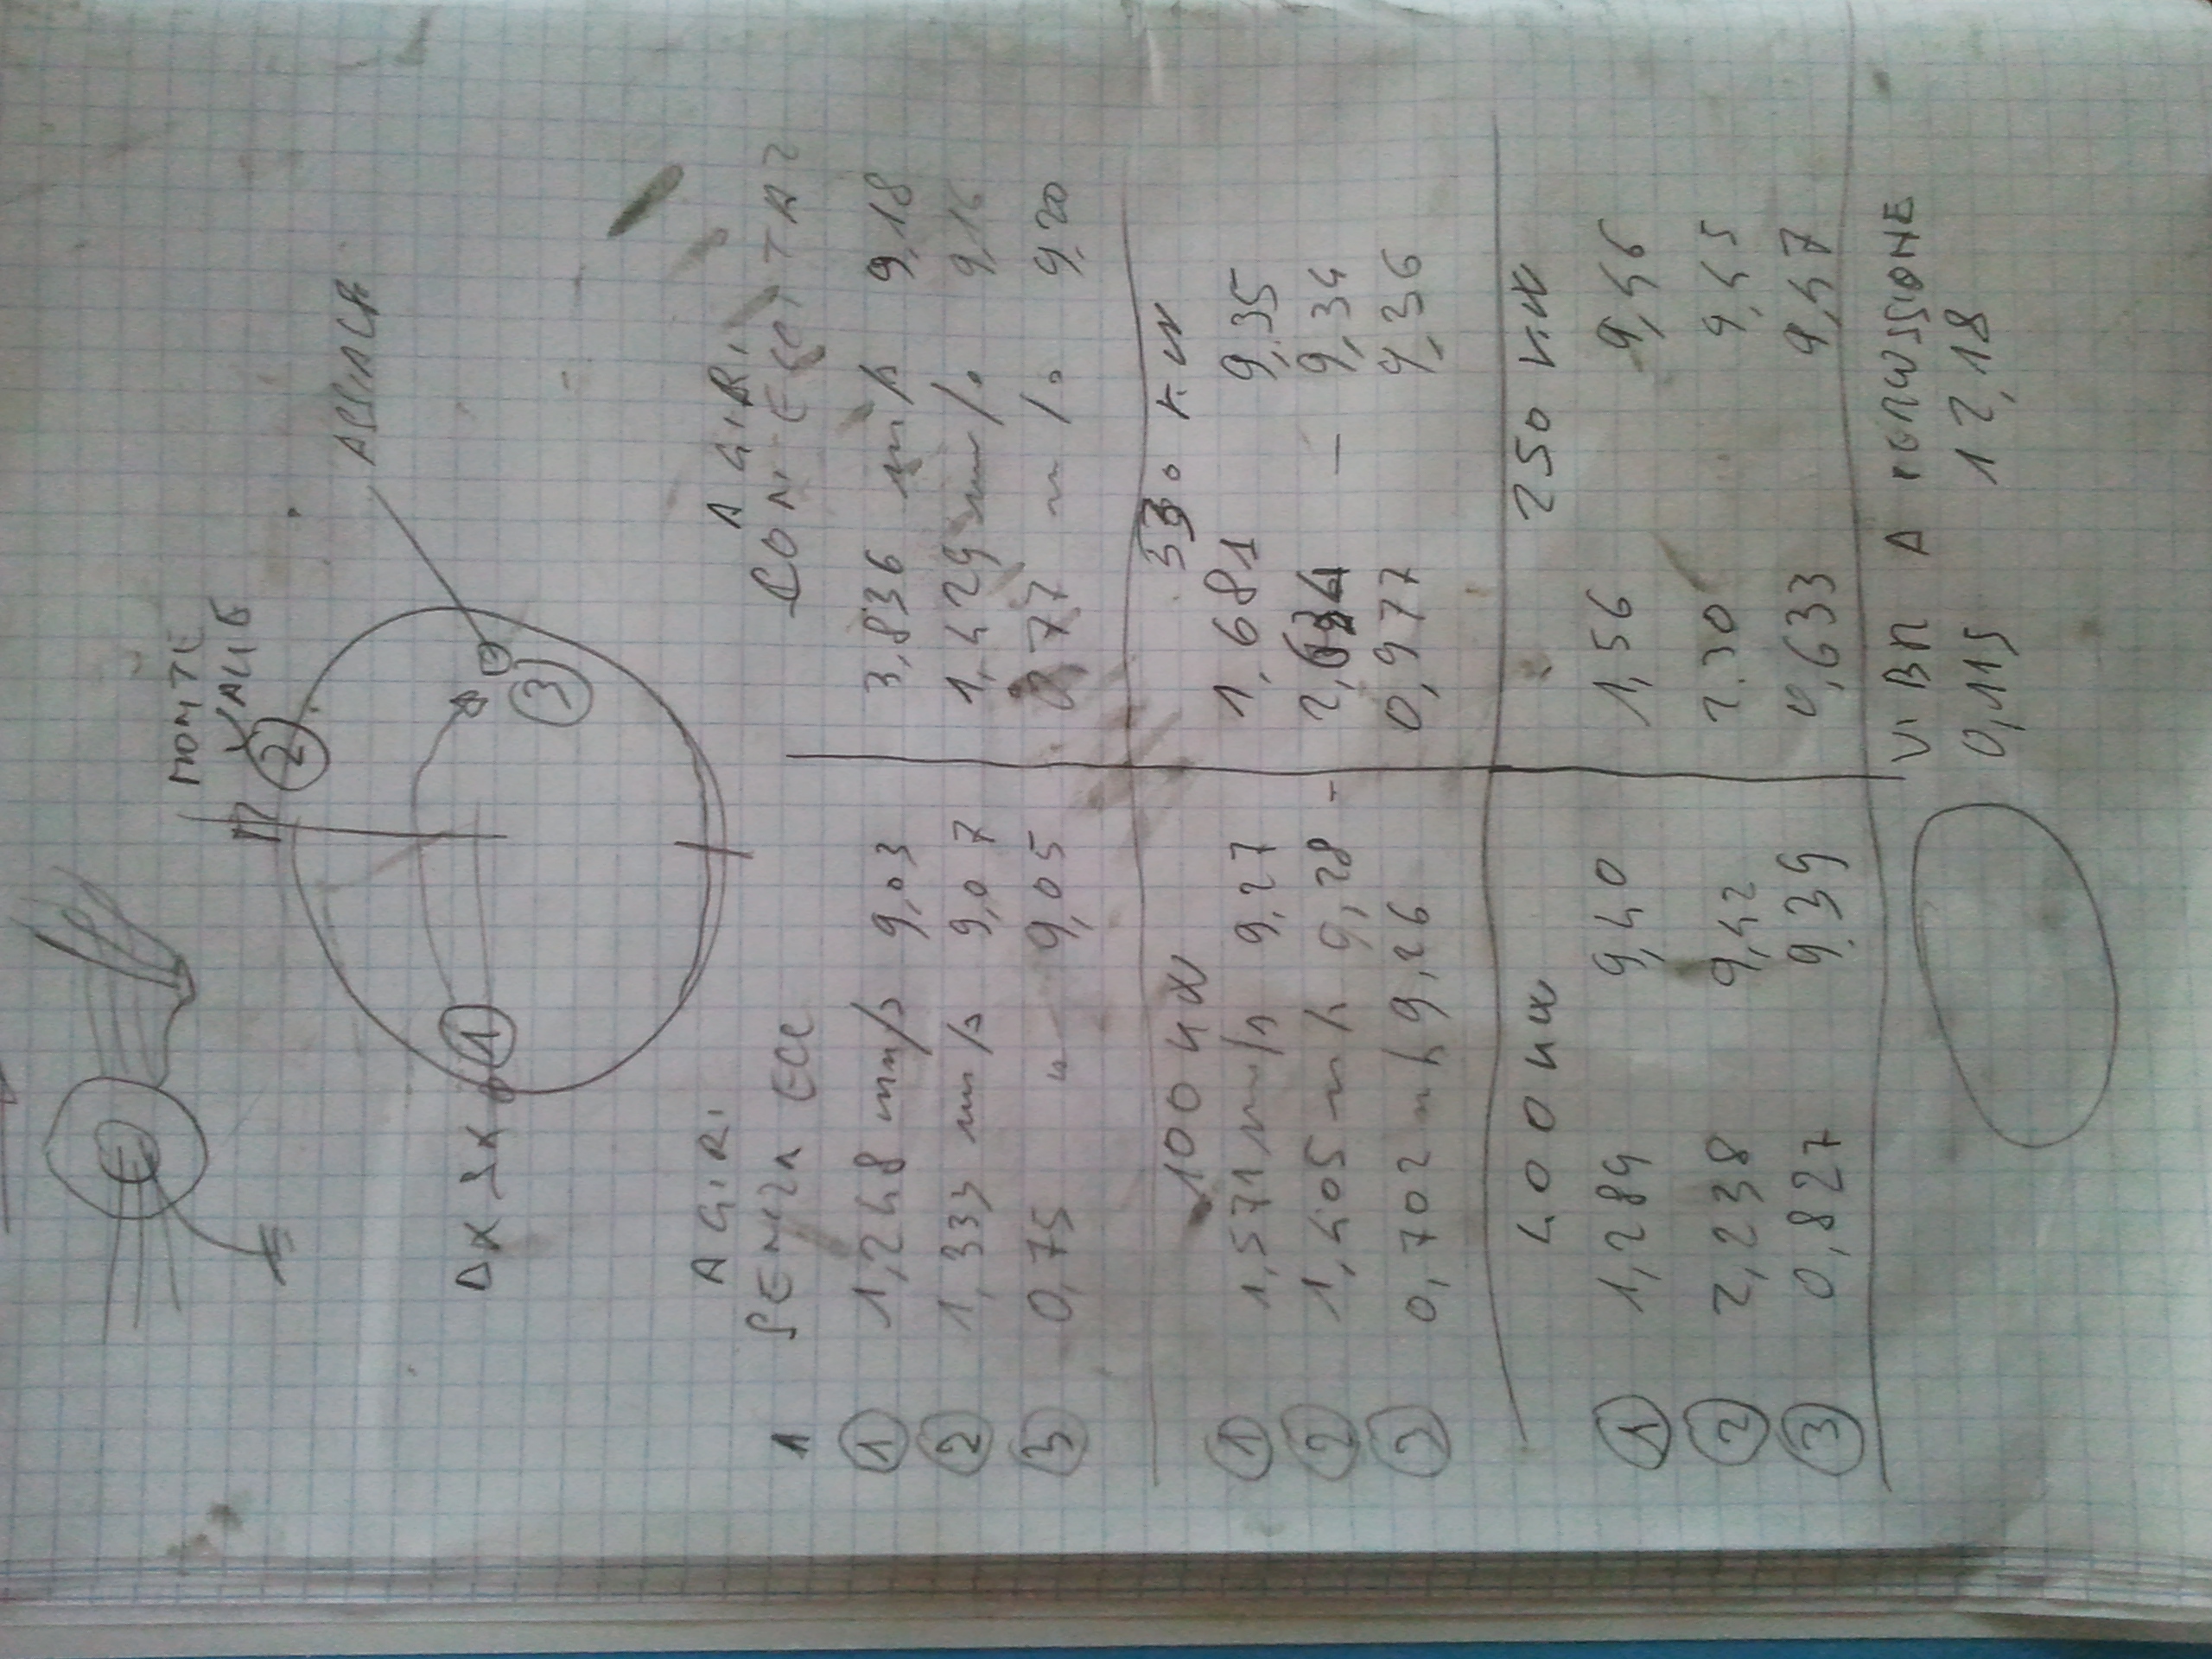 MONTE
VALLE
2
ASSIALE
DX SX
1
3
A GIRI
SENZA ECC
A GIRI
CON ECCITAZ
1
① 1,248 mm/s 9,03
② 1,333 mm/s 9,07
③ 0,75 " 9,05
3,836 mm/s 9,18
1,429 mm/s 9,16
0,77 m/s 9,20
100 kW
① 1,571 mm/s 9,27
② 1,405 m/s 9,28 -
③ 0,702 m/s 9,26
330 kW
1,681 9,35
2,634 — 9,34
0,977 9,36
400 kW
① 1,289 9,40
② 2,238 9,42
③ 0,827 9.39
250 kW
1,56 9,46
2.30 9,45
0,633 9,47
VIBR A PERCUSSIONE
0,115 12,18